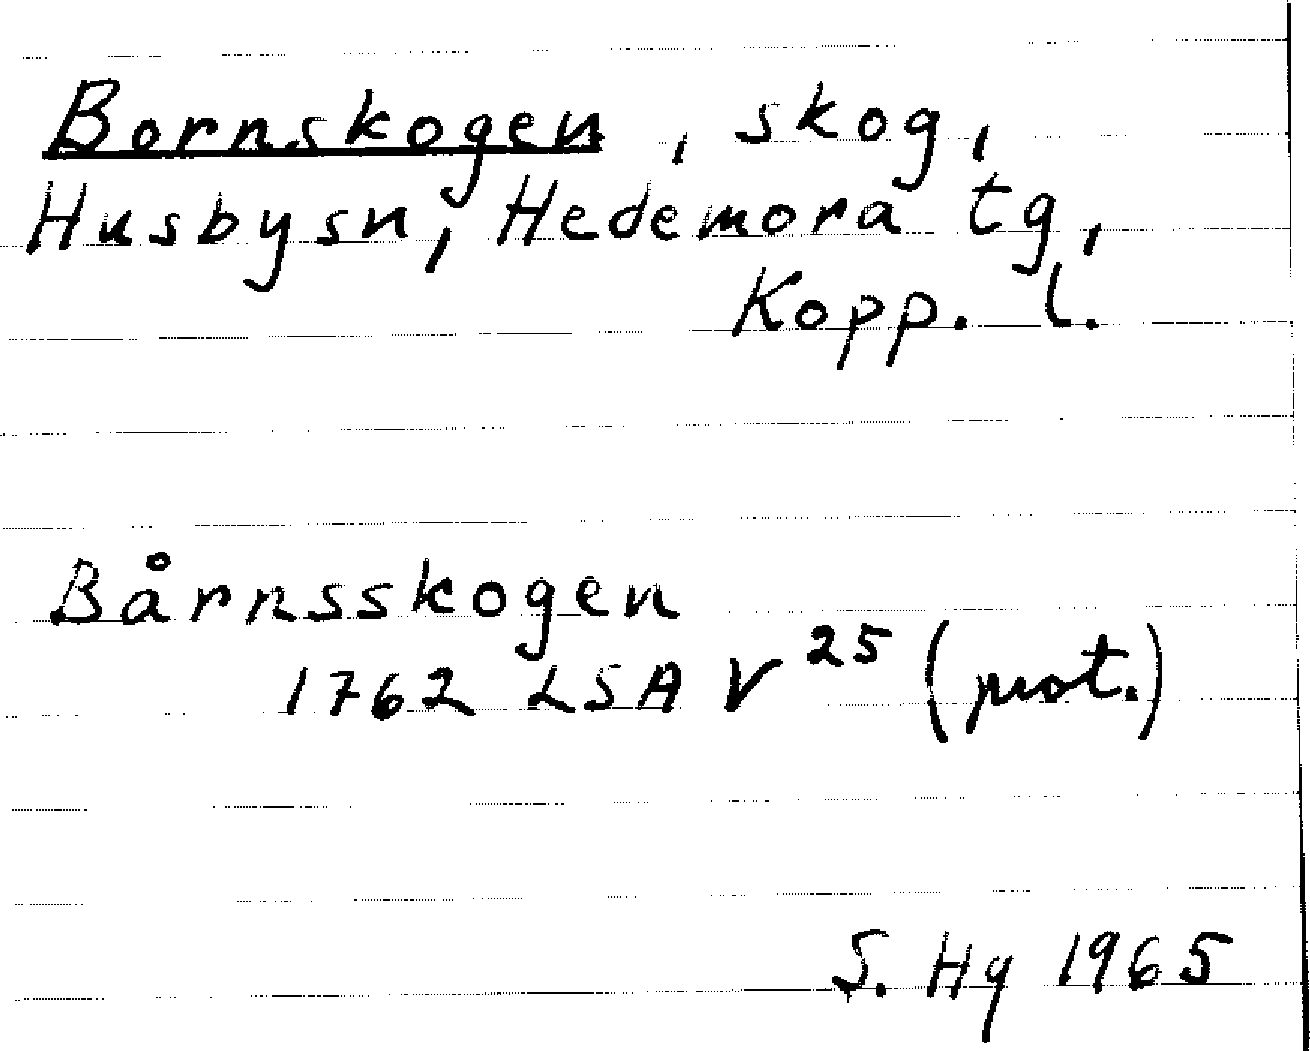 Bornskogen, skog,
Husbysn, Hedemora tg,
Kopp. l.
Bårnsskogen
1762 LSA V 25 (prot.)
S. Hg 1965